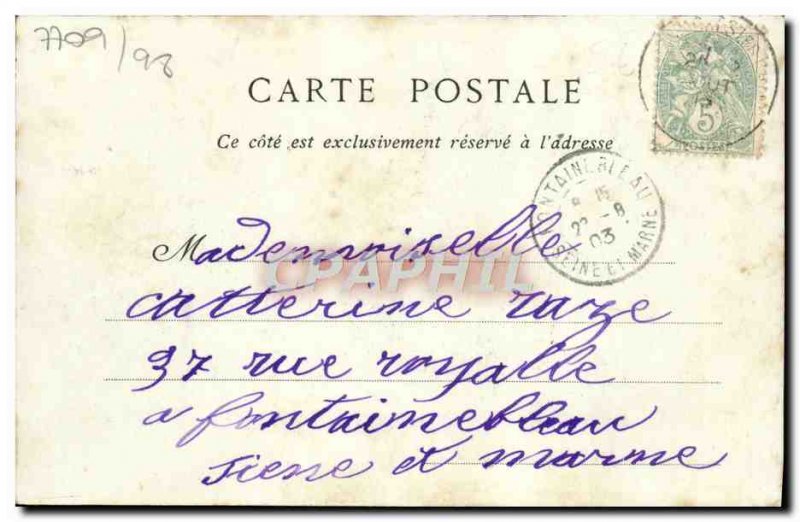 7709/98
CARTE POSTALE
Ce côté est exclusivement réservé à l'adresse
5
POSTES
FONTAINEBLEAU
8 15
22 - 8
03
SEINE ET MARNE
Mademoiselle
CPAPHIL
catterine raze
37 rue royalle
a fontainebleau
siene et marne